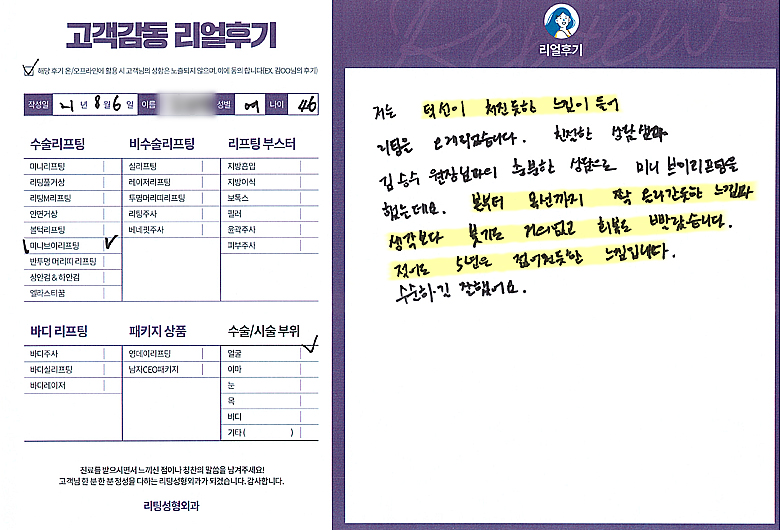 고객감동 리얼후기
해당 후기 온/오프라인에 활용 시 고객님의 성함은 노출되지 않으며, 이에 동의 합니다(EX. 김OO님의 후기)
작성일 21년 8월 6일 이름 성별 여 나이 46
수술리프팅
미니리프팅
리팅풀거상
리팅M리프팅
안면거상
쎌턱리프팅
미니브이리프팅
반투명 머리띠 리프팅
상안검 & 하안검
엘라스티꿈
비수술리프팅
실리프팅
레이저리프팅
투명머리띠리프팅
리팅주사
베네핏주사
리프팅 부스터
지방흡입
지방이식
보톡스
필러
윤곽주사
피부주사
바디 리프팅
바디주사
바디실리프팅
바디레이저
패키지 상품
원데이리프팅
남자CEO패키지
수술/시술 부위
얼굴
이마
눈
목
바디
기타 ( )
진료를 받으시면서 느끼신 점이나 칭찬의 말씀을 남겨주세요!
고객님 한 분 한 분 정성을 다하는 리팅성형외과가 되겠습니다. 감사합니다.
리팅성형외과
Review
리얼후기
저는 턱선이 처진듯한 느낌이 들어
리팅을 오게되었습니다. 친절한 상담실과
김승수 원장님과의 충분한 상담으로 미니 브이리프팅을
했는데요. 볼부터 목선까지 싹 올라간듯한 느낌과
생각보다 붓기도 거의없고 회복도 빨랐습니다.
적어도 5년은 젊어진듯한 느낌입니다.
수술하길 잘했어요.